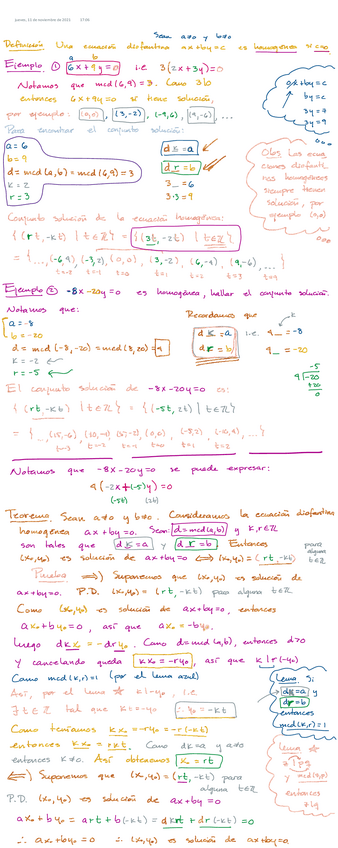 jueves, 11 de noviembre de 2021 17:06
Sean a≠0 y b≠0
Definición Una ecuación diofantina ax+by=c es homogénea si c=0
a b
Ejemplo ① 6x+9y=0 i.e 3(2x+3y)=0
Notamos que mcd(6,9)=3. Como 3|0
entonces 6x+9y=0 sí tiene solución,
por ejemplo: (0,0), (3,-2), (-9,6), (9,-6), ...
0x+by=c
by=c
3y=9
Para encontrar el conjunto solución:
a=6
b=9
d=mcd(a,b)=mcd(6,9)=3
k=2
r=3
dk=a
dr=b
3_=6
3·3=9
Obs: Las ecuaciones diofantinas homogéneas siempre tienen solución, por ejemplo (0,0)
Conjunto solución de la ecuación homogénea:
{(rt,-kt) | t∈ℤ} = {(3t,-2t) | t∈ℤ}
= {...,(-6,4),(-3,2),(0,0),(3,-2),(6,-4),(9,-6),...}
t=-2 t=-1 t=0 t=1 t=2 t=3
Ejemplo ② -8x-20y=0 es homogénea, hallar el conjunto solución.
Notamos que:
Recordamos que
a=-8
b=-20
d=mcd(-8,-20)=mcd(8,20)=4
k=-2
r=-5
dk=a i.e. 4_=-8
dr=b 4_=-20
El conjunto solución de -8x-20y=0 es:
{(rt,-kt) | t∈ℤ} = {(-5t,2t) | t∈ℤ}
= {...,(15,-6),(10,-4),(5,-2),(0,0),(-5,2),(-10,4),...}
t=-3 t=-2 t=-1 t=0 t=1 t=2
Notamos que -8x-20y=0 se puede expresar:
4(-2x+(-5)y)=0
(-5t) (2t)
Teorema. Sean a≠0 y b≠0. Consideramos la ecuación diofantina
homogénea ax+by=0. Sean d=mcd(a,b) y k,r∈ℤ
son tales que dk=a y dr=b. Entonces
(x₀,y₀) es solución de ax+by=0 ⟺ (x₀,y₀)=(rt,-kt) para alguna t∈ℤ
Prueba ⟹) Suponemos que (x₀,y₀) es solución de
ax+by=0. P.D. (x₀,y₀)=(rt,-kt) para alguna t∈ℤ
Como (x₀,y₀) es solución de ax+by=0, entonces
ax₀+by₀=0, así que ax₀=-by₀.
Luego dkx₀=-dry₀. Como d=mcd(a,b), entonces d>0
y cancelando queda kx₀=-ry₀, así que k|r(-y₀)
Como mcd(k,r)=1 (por el lema azul)
Así, por el lema ☆ k|-y₀, i.e.
∃t∈ℤ tal que kt=-y₀ ∴ y₀=-kt
Lema. Si
dk=a y
dr=b
entonces
mcd(k,r)=1
Como teníamos kx₀=-ry₀=-r(-kt)
entonces kx₀=rkt. Como dk=a y a≠0
entonces k≠0. Así obtenemos x₀=rt
Lema ☆
entonces
⟸) Suponemos que (x₀,y₀)=(rt,-kt) para alguna t∈ℤ
P.D. (x₀,y₀) es solución de ax+by=0
ax₀+by₀=art+b(-kt)=dkrt+dr(-kt)=0
∴ ax₀+by₀=0 ∴ (x₀,y₀) es solución de ax+by=0.